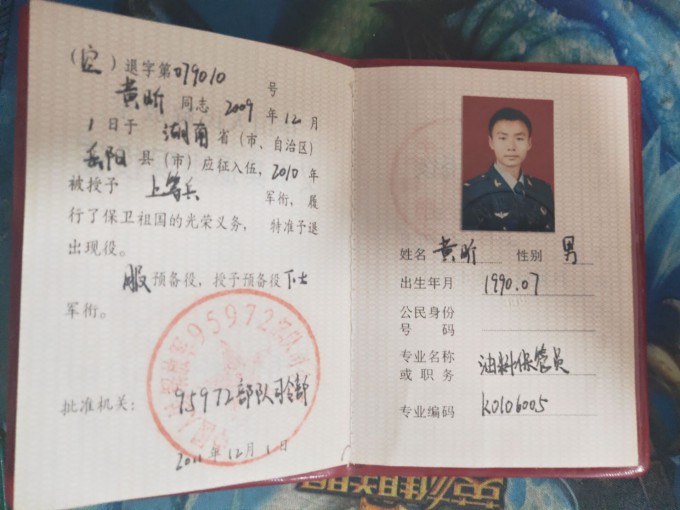 （空）退字第079010号
黄昕同志2009年12月
1日于湖南省（市、自治区）
岳阳县（市）应征入伍，2010年
被授予上等兵军衔，履
行了保卫祖国的光荣义务，特准予退
出现役。
服预备役，授予预备役下士
军衔。
95972部队
批准机关：95972部队司令部
2011年12月1日
姓名 黄昕 性别 男
出生年月 1990.07
公民身份
号码
专业名称 油料保管员
或职务
专业编码 K0106005
英雄联盟